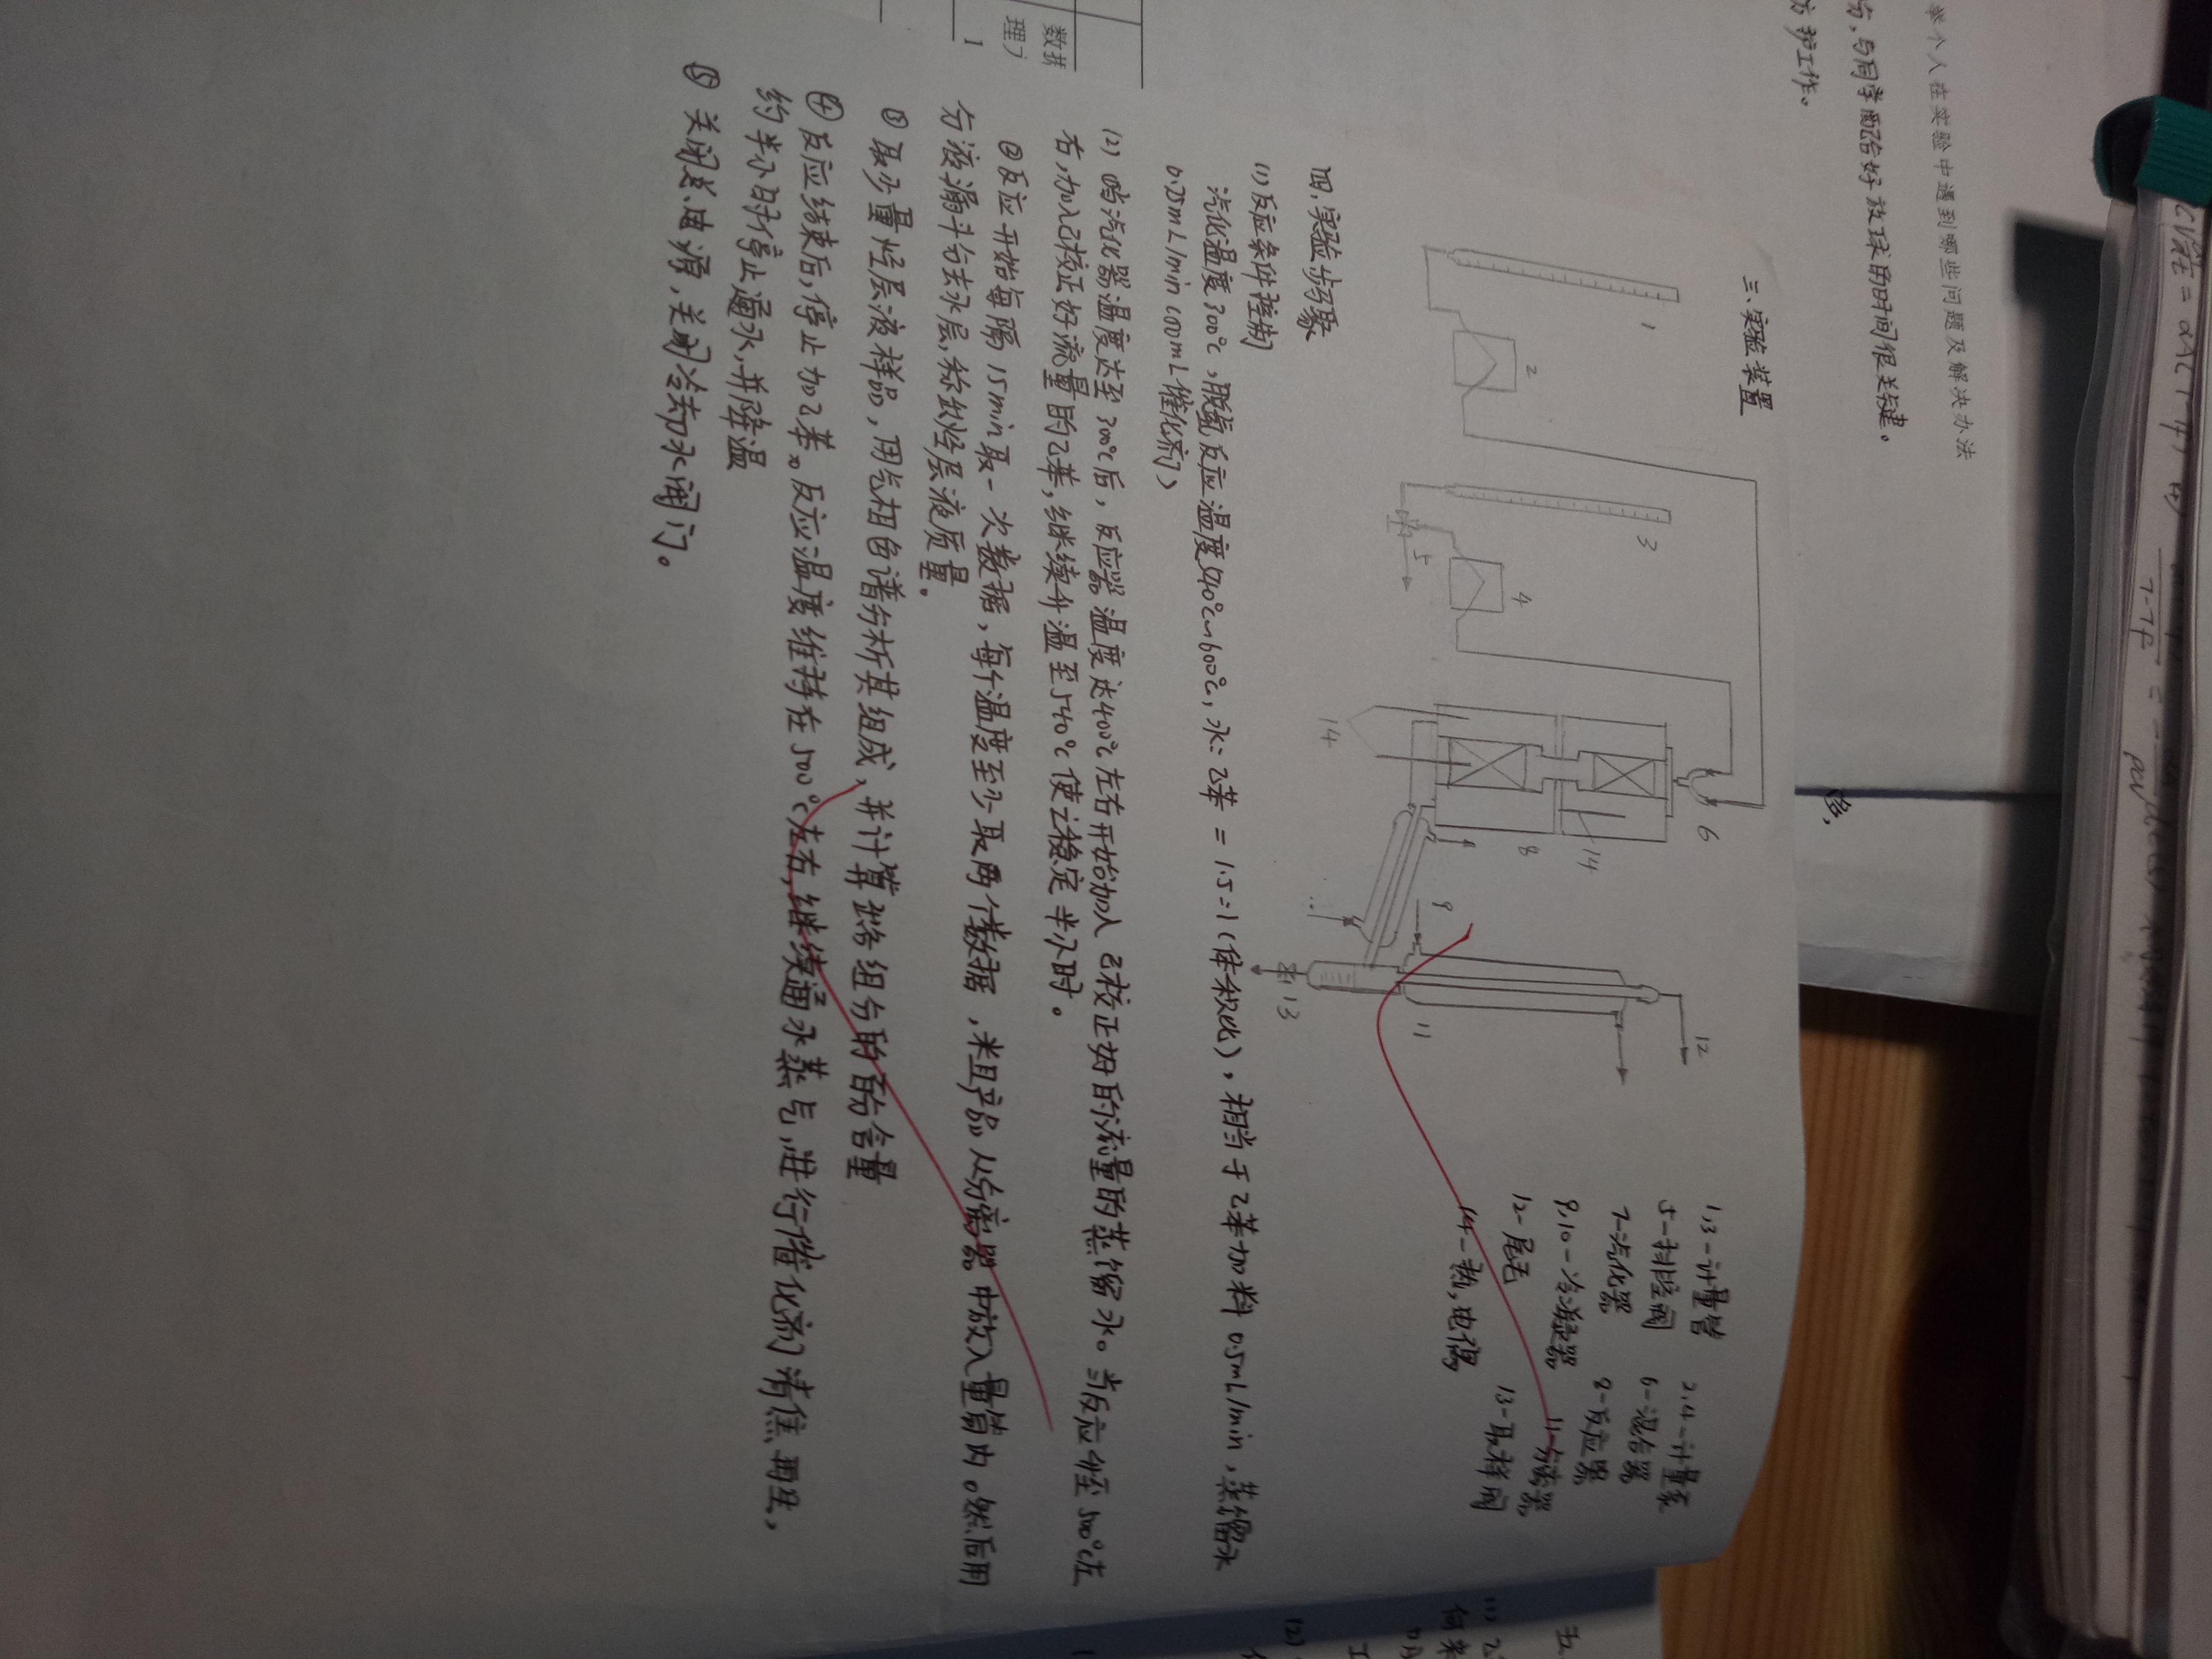 举个人在实验中遇到哪些问题及解决办法
与同学配合好放球的时间很关键。
护工作。
三、实验装置
1
2
3
4
5
6
8
14
14
9
11
12
13
1,3—计量管 2,4—计量泵
5—排空阀 6—混合器
7—汽化器 8—反应器
9,10—冷凝器 11—分离器
12—尾气 13—取样阀
14—热电偶
四、实验步骤
(1)反应条件控制
汽化温度300℃,脱氢反应温度540℃~600℃,水:乙苯=1.5:1(体积比),相当于乙苯加料0.5mL/min,蒸馏水
0.75mL/min(00mL催化剂)
(2) 当汽化器温度达至300℃后,反应器温度达400℃左右开始加入已校正好的流量的蒸馏水。当反应升至500℃左
右,加入已校正好流量的乙苯,继续升温至540℃使之稳定半小时。
②反应开始每隔15min取一次数据,每个温度至少取两个数据,粗产品从分离器中放入量筒内。然后用
分液漏斗分去水层,称出烃层液质量。
③ 取少量烃层液样品,用气相色谱分析其组成,并计算出各组分的百分含量
④ 反应结束后,停止加乙苯。反应温度维持在500℃左右,继续通水蒸气,进行催化剂清焦再生,
约半小时停止通水,并降温
⑤ 关闭总电源,关闭冷却水阀门。
数据
理
1